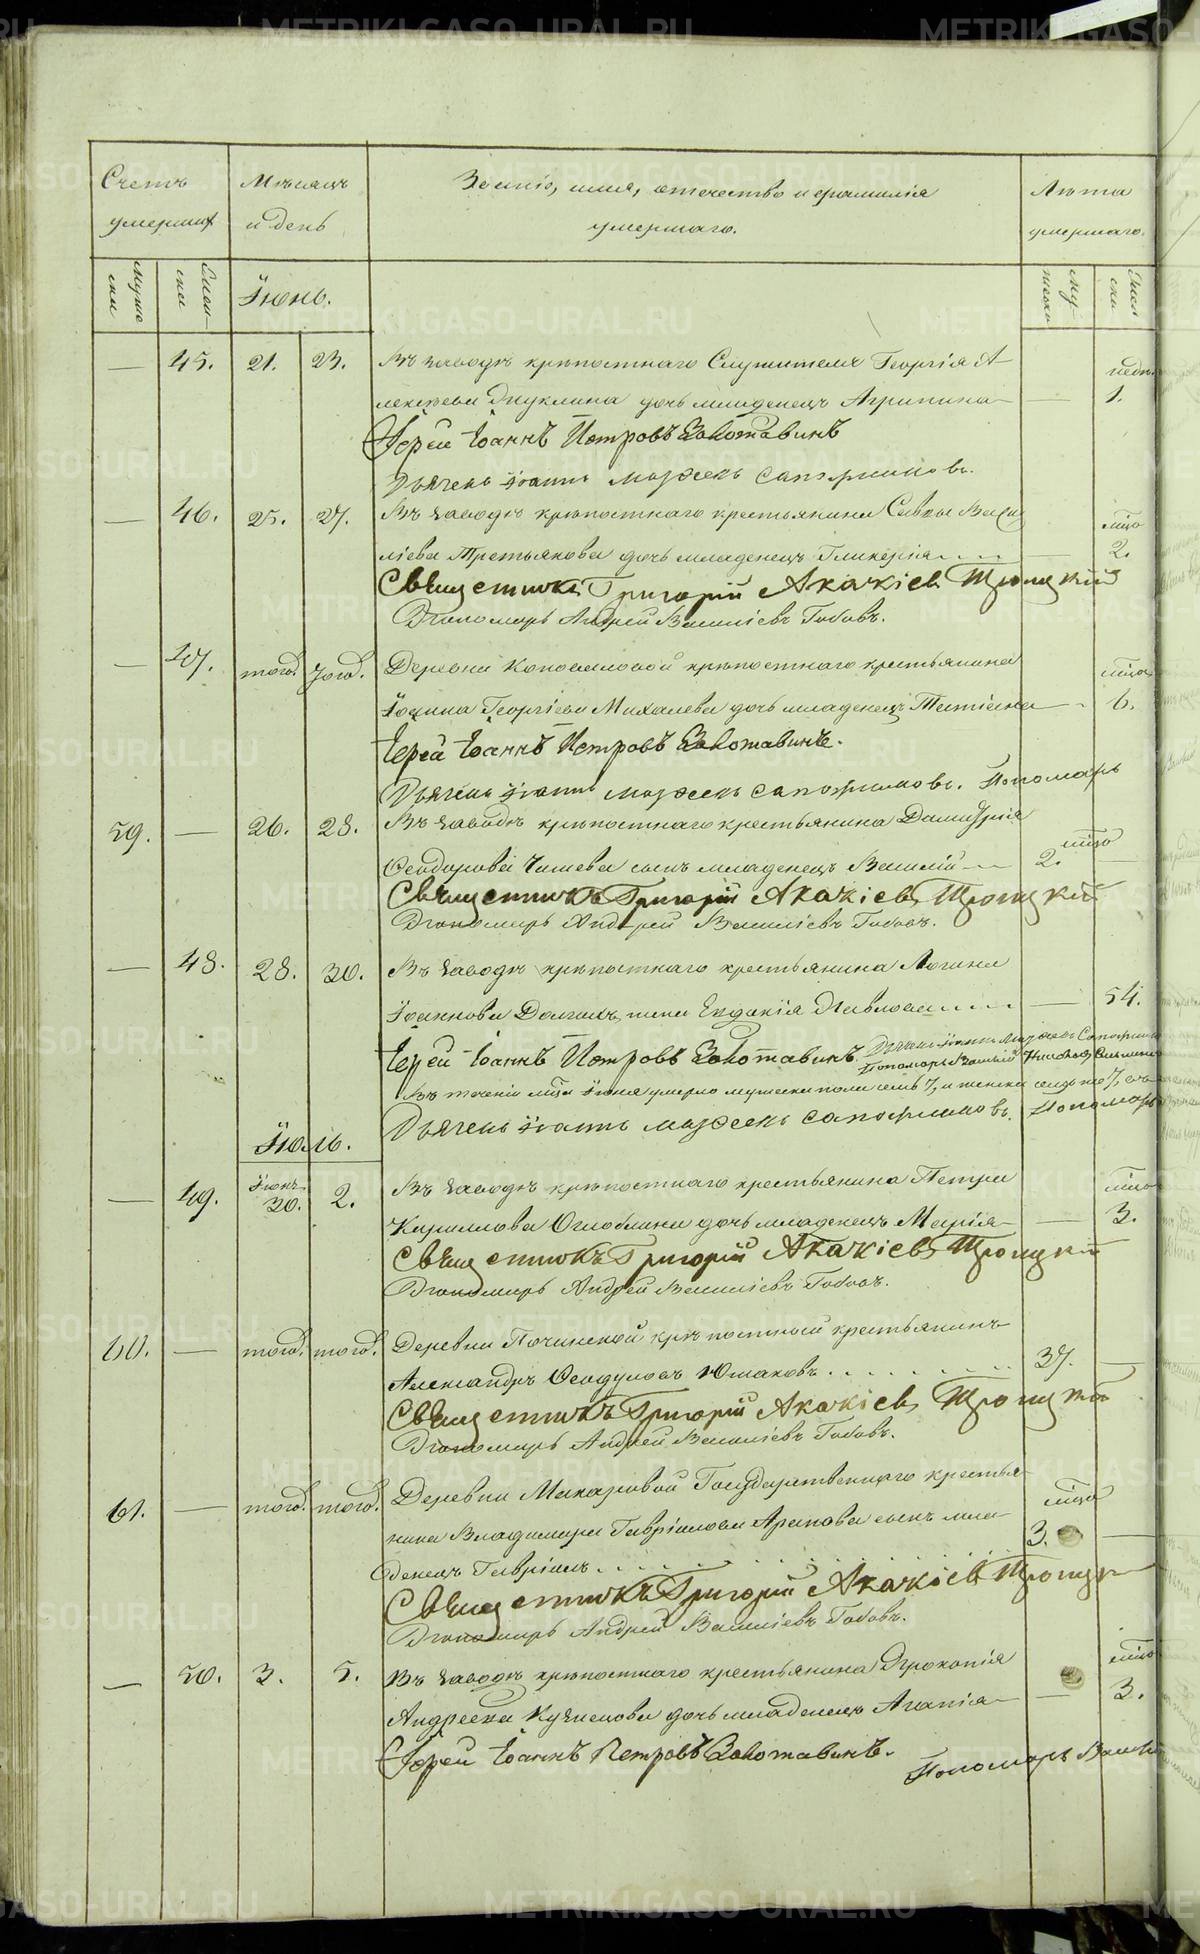 METRIKI.GASO-URAL.RU
Счетъ
умершихъ
Мѣсяцъ
и день
Званіе, имя, отечество и фамилія
умершаго.
Лѣта
умершаго.
Муже
ски
Жен-
ски
Іюнь.
Му-
жеска
Жен
ска
— 45. 21. 23. Въ заводѣ крѣпостнаго Служителя Георгія А-
недѣ.
лексѣева дочь младенецъ Агрипина — 1.
Іерей Іоаннъ Петровъ Золотавинъ
Дьячекъ Іоаннъ Сапожниковъ.
— 46. 25. 27. Въ заводѣ крѣпостнаго крестьянина Саввы Васи
мѣся
ліева Третьякова дочь младенецъ Гликерія.... — 2.
Священникъ Григорій Акакіевъ Троицкій
Пономарь Андрей Василіевъ
— 47. тогож. тогож. Деревни Коноваловой крѣпостнаго крестьянина
мѣся
Іоанна Георгіева Михалева дочь младенецъ Татіана — 6.
Іерей Іоаннъ Петровъ Золотавинъ.
Дьячекъ Іоаннъ Сапожниковъ. Пономарь
59. — 26. 28. Въ заводѣ крѣпостнаго крестьянина Димитрія
мѣся
Ѳеодорова сынъ младенецъ Василій — 2.
Священникъ Григорій Акакіевъ Троицкій
Пономарь Андрей Василіевъ
— 48. 28. 30. Въ заводѣ крѣпостнаго крестьянина Логина
Іоаннова Долгихъ жена Евдокія Павлова.... — 54.
Іерей Іоаннъ Петровъ Золотавинъ. Дьячекъ Іоаннъ
Пономарь
Въ теченіи мѣсяца Іюня умерло мужеска пола семь 7, и женска
Дьячекъ Іоаннъ Сапожниковъ. Пономарь
Іюль.
— 49. Іюн. 30. 2. Въ заводѣ крѣпостнаго крестьянина Петра
мѣся
Кириллова Оглоблина дочь младенецъ Марія — 3.
Священникъ Григорій Акакіевъ Троицкій
Пономарь Андрей Василіевъ
60. — тогож. тогож. Деревни Починской крѣпостный крестьянинъ
Александръ Ѳеодуловъ Юшаковъ. . . . 37. —
Священникъ Григорій Акакіевъ Троицкій
Пономарь Андрей Василіевъ
61. — тогож. тогож. Деревни Макаровой Государственнаго крестья-
мѣся
нина Владимира Гавріилова Арапова сынъ мла- 3. —
денецъ Гавріилъ. . . .
Священникъ Григорій Акакіевъ Троицк
Пономарь Андрей Василіевъ
— 50. 3. 5. Въ заводѣ крѣпостнаго крестьянина Прокопія
мѣся
Андреева Кузнецова дочь младенецъ Агапія — 3.
Іерей Іоаннъ Петровъ Золотавинъ. Пономарь